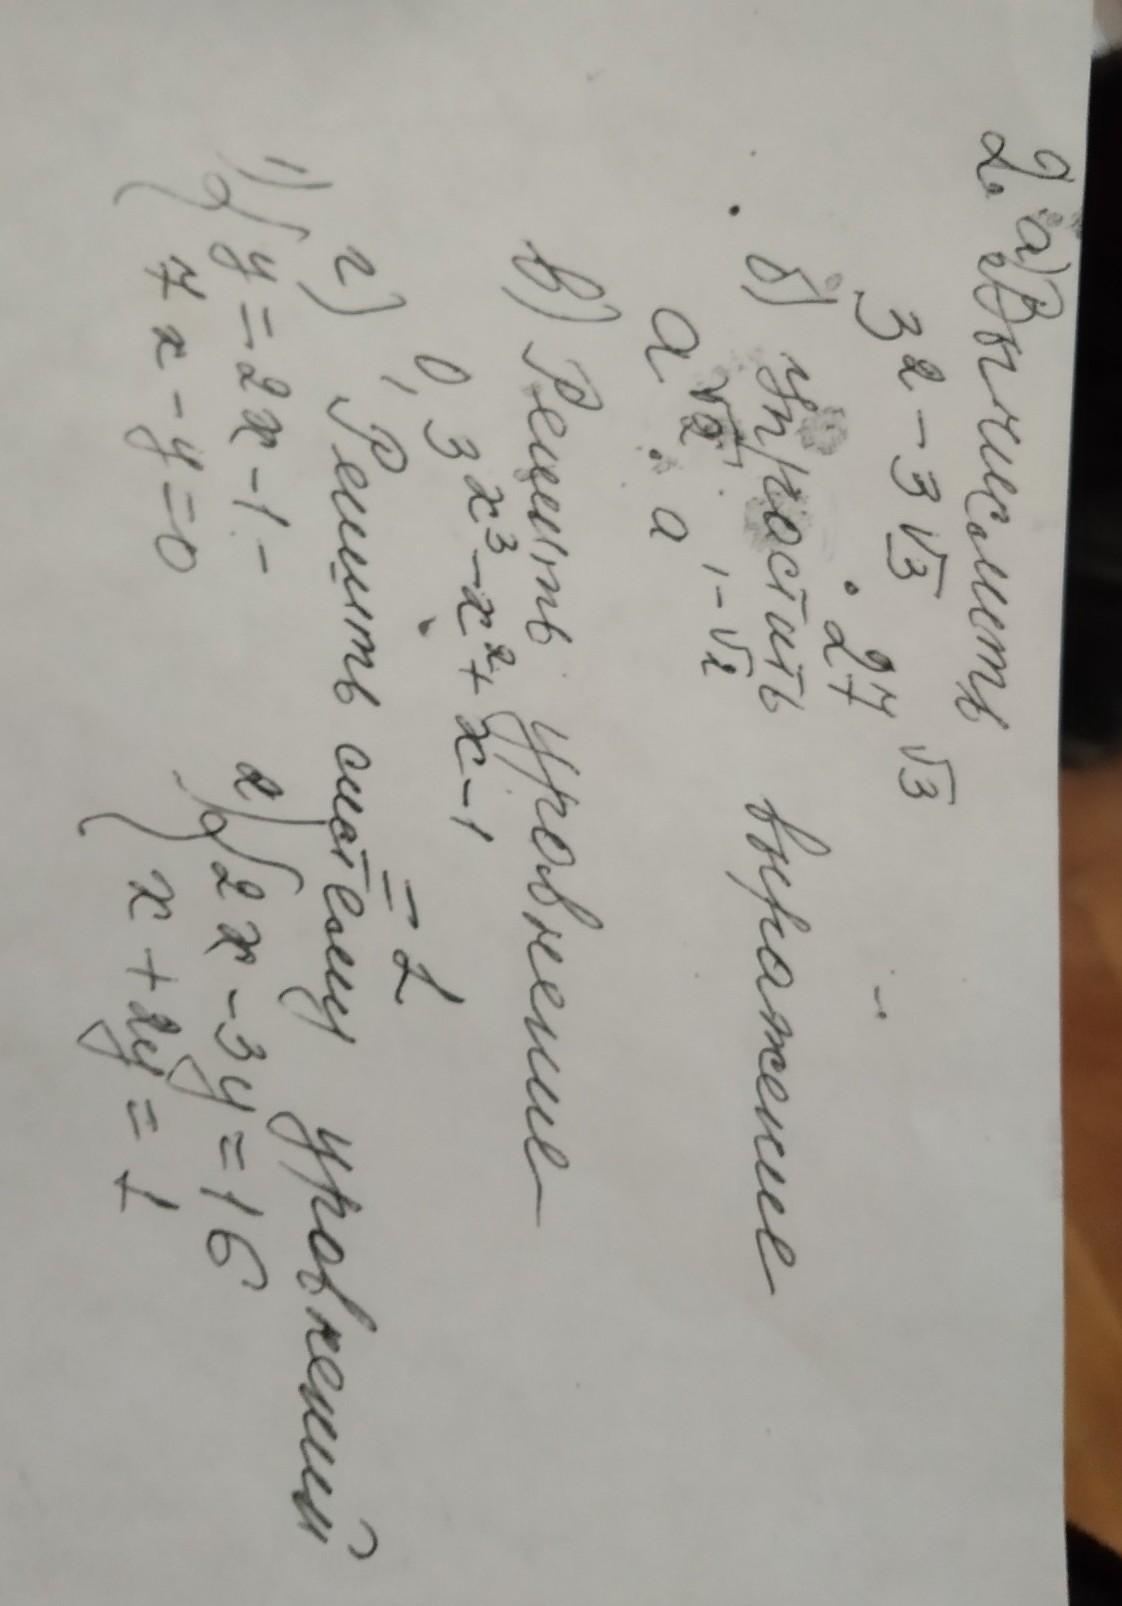 2. а) Вычислить
3^{2-3√3} · 27^{√3}
б) упростить выражение
a^{√2} · a^{1-√2}
в) Решить уровнение
0,3^{x³-x²+x-1} = 1
г) Решить систему уровнений
1) { y = 2x - 1
7x - y = 0
2) { 2x - 3y = 16
x + 2y = 1